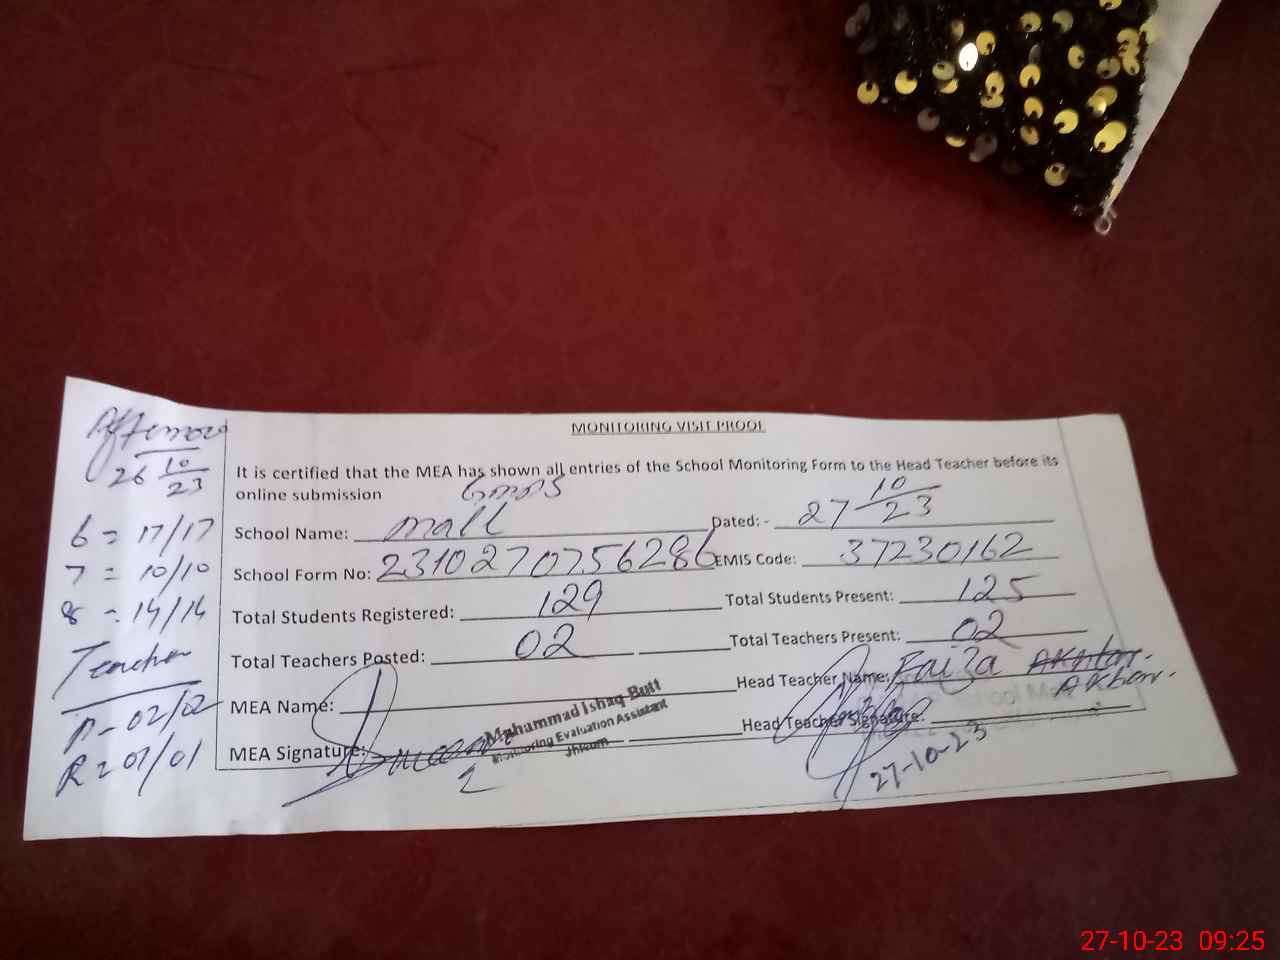 MONITORING VISIT PROOF
It is certified that the MEA has shown all entries of the School Monitoring Form to the Head Teacher before its
online submission
GMPS
School Name: Mall Dated: - 27 10/23
School Form No: 2310270756286 EMIS Code: 37230162
Total Students Registered: 129 Total Students Present: 125
Total Teachers Posted: 02 Total Teachers Present: 02
MEA Name: Head Teacher Name: Faiza Akhtar.
Akbar.
MEA Signature: Head Teacher Signature:
Muhammad Ishaq Butt
Monitoring Evaluation Assistant
Jhelum
27-10-23
Afternoon
26 10/23
6 = 17/17
7 = 10/10
8 = 14/14
Teacher
P - 02/02
R = 01/01
27-10-23 09:25